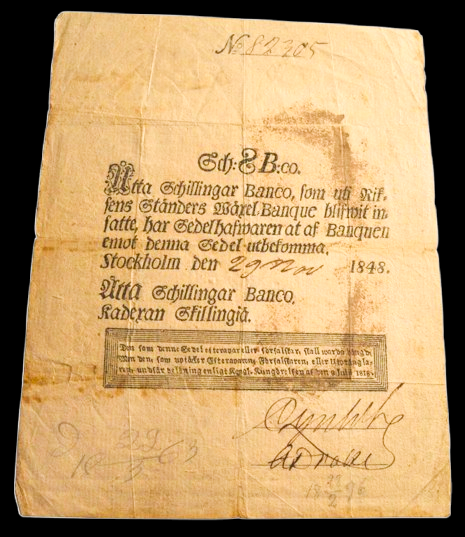 No 82305
Sch: 8 B:co.
Åtta Schillingar Banco, som uti Rik-
sens Ständers Wäxel-Banque blifwit in-
satte, har Sedelhafwaren at af Banquen
emot denna Sedel utbekomma,
Stockholm den 29 Nov 1848.
Åtta Schillingar Banco.
Kadexan Skillingiä.
Den som denne Sedel efterapar eller förfalskar, skall warda hängd;
Men den, som uptäcker Efteraparen, Förfalskaren, eller
undfår belöning enligt Kongl. Kungörelsen af den 9 Julii 1818.
29
18 63
5
22
18 96
2